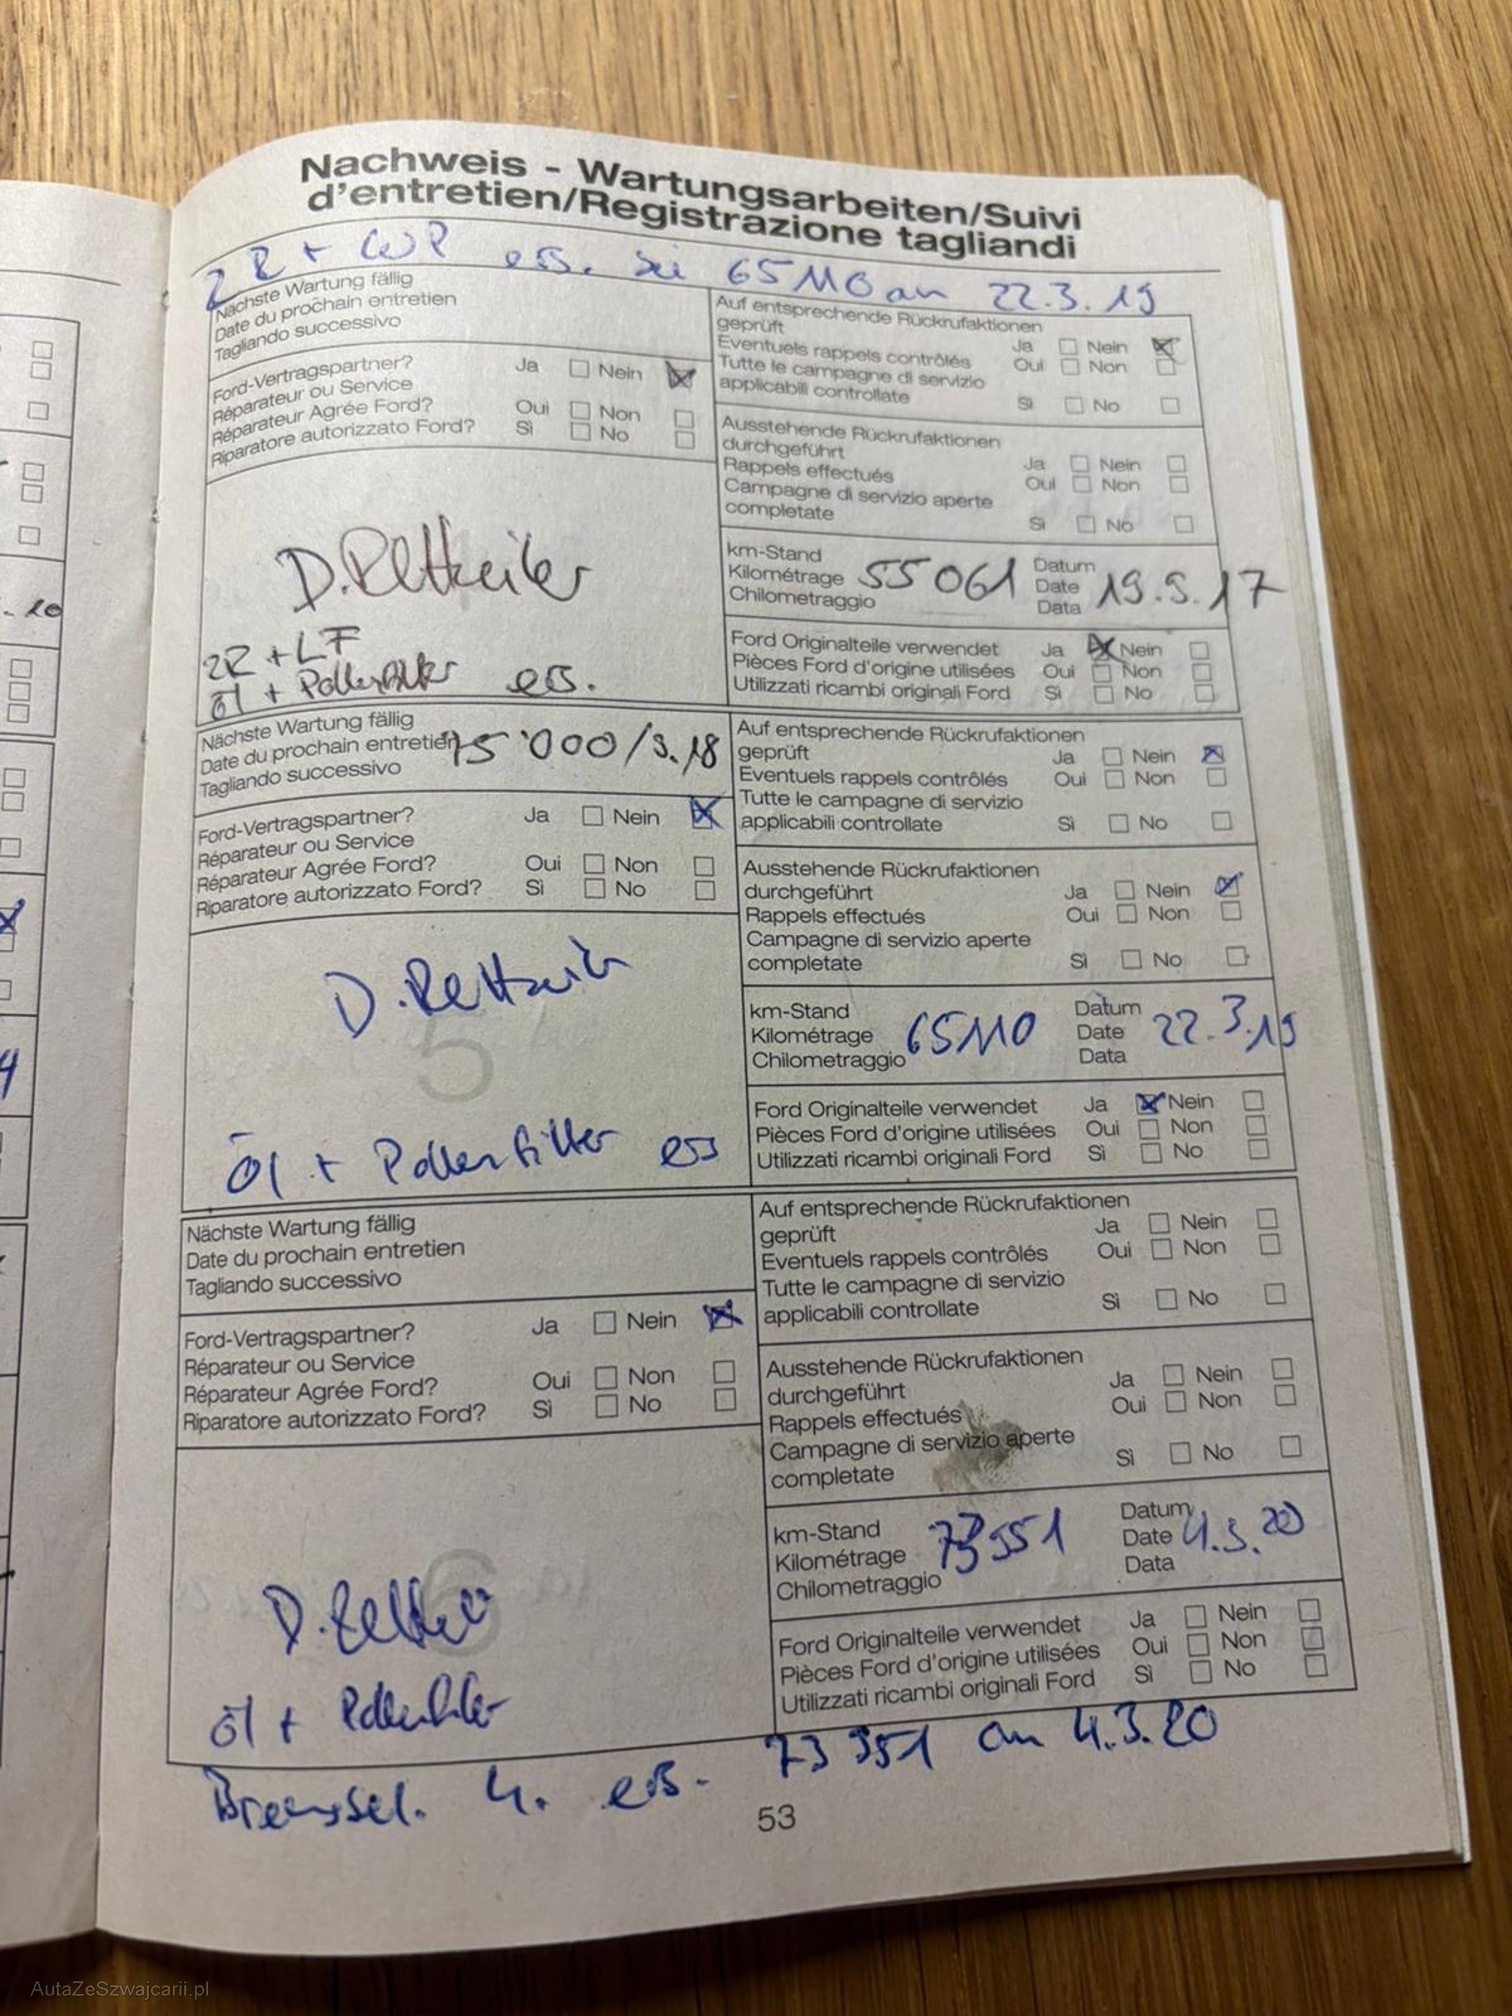 Nachweis - Wartungsarbeiten/Suivi
d'entretien/Registrazione tagliandi
ZR + WP ers. bei 65110 am 22.3.19
Nächste Wartung fällig
Date du prochain entretien
Tagliando successivo
Ford-Vertragspartner? Ja Nein
Réparateur ou Service
Réparateur Agrée Ford? Oui Non
Riparatore autorizzato Ford? Sì No
Auf entsprechende Rückrufaktionen
geprüft Ja Nein
Eventuels rappels contrôlés Oui Non
Tutte le campagne di servizio
applicabili controllate Sì No
Ausstehende Rückrufaktionen
durchgeführt Ja Nein
Rappels effectués Oui Non
Campagne di servizio aperte
completate Sì No
km-Stand
Kilométrage 55061
Chilometraggio
Datum
Date 19.9.17
Data
Ford Originalteile verwendet Ja Nein
Pièces Ford d'origine utilisées Oui Non
Utilizzati ricambi originali Ford Sì No
ZR + LF
Öl + Pollenfilter ers.
Nächste Wartung fällig
Date du prochain entretien 75'000/9.18
Tagliando successivo
Ford-Vertragspartner? Ja Nein
Réparateur ou Service
Réparateur Agrée Ford? Oui Non
Riparatore autorizzato Ford? Sì No
Auf entsprechende Rückrufaktionen
geprüft Ja Nein
Eventuels rappels contrôlés Oui Non
Tutte le campagne di servizio
applicabili controllate Sì No
Ausstehende Rückrufaktionen
durchgeführt Ja Nein
Rappels effectués Oui Non
Campagne di servizio aperte
completate Sì No
5
km-Stand
Kilométrage 65110
Chilometraggio
Datum
Date 22.3.19
Data
Ford Originalteile verwendet Ja Nein
Pièces Ford d'origine utilisées Oui Non
Utilizzati ricambi originali Ford Sì No
Öl + Pollenfilter ers
Nächste Wartung fällig
Date du prochain entretien
Tagliando successivo
Ford-Vertragspartner? Ja Nein
Réparateur ou Service
Réparateur Agrée Ford? Oui Non
Riparatore autorizzato Ford? Sì No
Auf entsprechende Rückrufaktionen
geprüft Ja Nein
Eventuels rappels contrôlés Oui Non
Tutte le campagne di servizio
applicabili controllate Sì No
Ausstehende Rückrufaktionen
durchgeführt Ja Nein
Rappels effectués Oui Non
Campagne di servizio aperte
completate Sì No
6
km-Stand
Kilométrage 73951
Chilometraggio
Datum
Date 4.3.20
Data
Ford Originalteile verwendet Ja Nein
Pièces Ford d'origine utilisées Oui Non
Utilizzati ricambi originali Ford Sì No
Öl + Pollenfilter
Bremsbel. h. ers. 73951 am 4.3.20
53
AutaZeSzwajcarii.pl